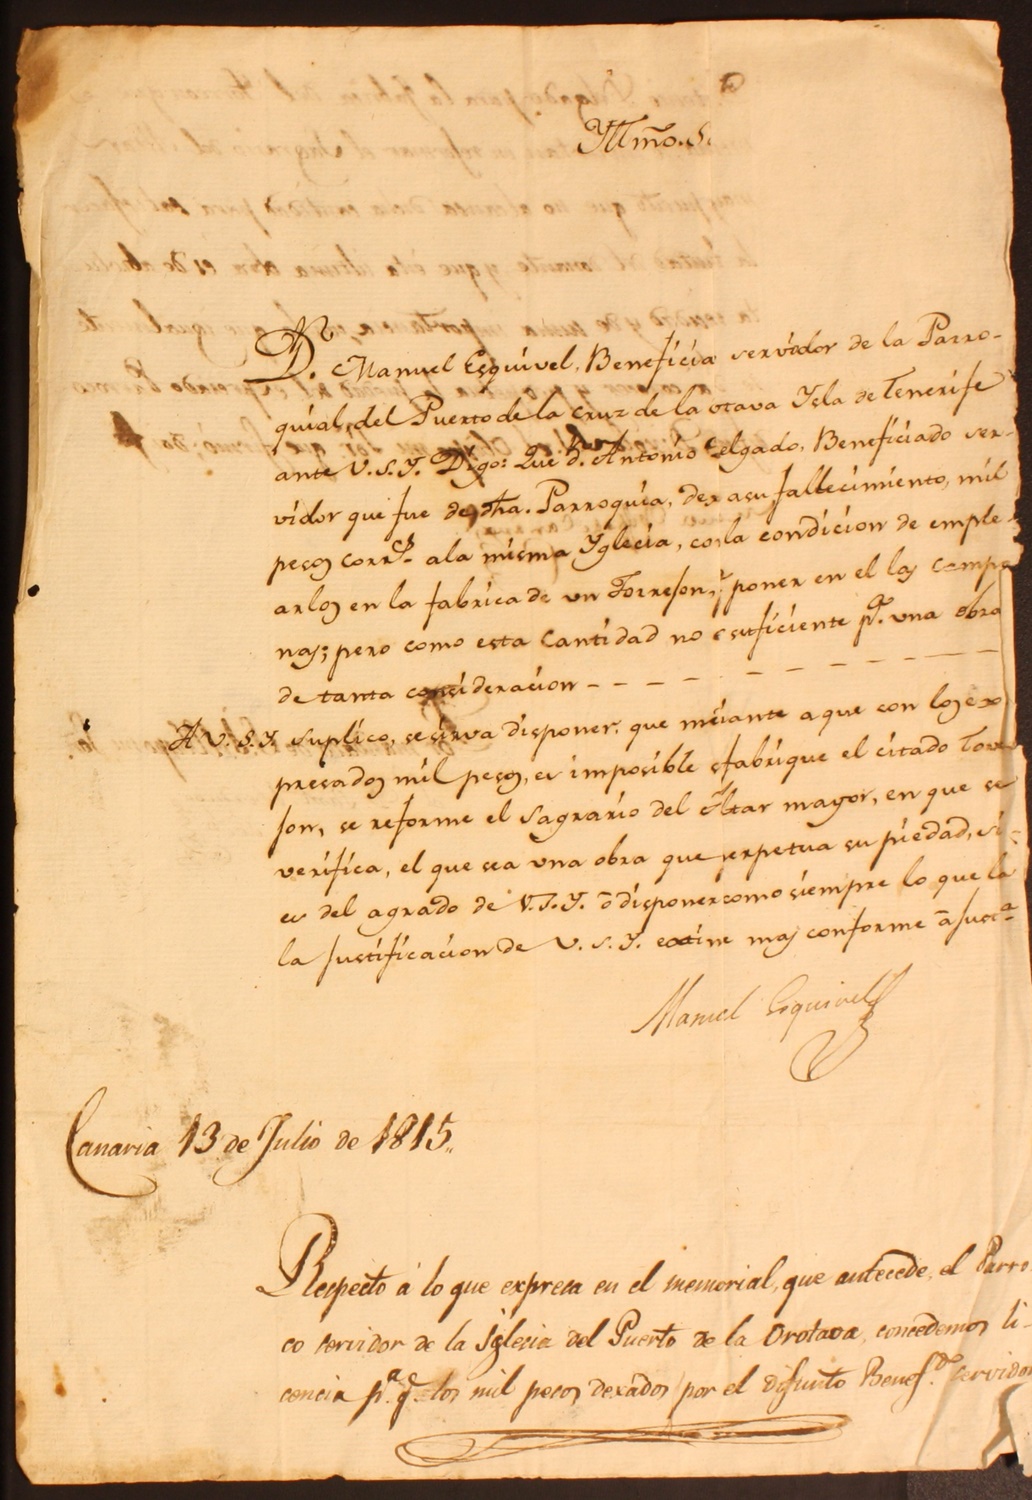 Yllmo. Sor
D. Manuel Esquivel, Beneficia servidor de la Parro-
quial, del Puerto de la Cruz de la otava Ysla de Tenerife
ante V.S.Y. Digo: Que dn. Antonio Delgado, Beneficiado ser-
vidor que fue de dha. Parroquia, dexa su fallecimiento, mil
pesos corrs. a la misma Yglecia, con la condicion de emple-
arlos en la fabrica de un Torreson, y poner en el las Campa
nas; pero como esta cantidad no es suficiente pa. una obra
de tanta concideracion - - - - - - - - - -
A V.S.Y. suplico, se sirva disponer, que mediante a que con los ex
presados mil pesos, es imposible se fabrique el citado Torre
son, se reforme el Sagrario del Altar mayor, en que se
verifica, el que sea una obra que perpetua su piedad, si
es del agrado de V.S.Y. ō disponer como siempre lo que la
la justificacion de V.S.Y. estime mas conforme ā justa
Manuel Esquivel
Canaria 13 de Julio de 1815..
Respecto á lo que expresa en el memorial, que antecede, el Parro
co servidor de la Iglesia del Puerto de la Orotava, concedemos li-
cencia pa. qe. los mil pesos dexados por el difunto Benefdo. servidor